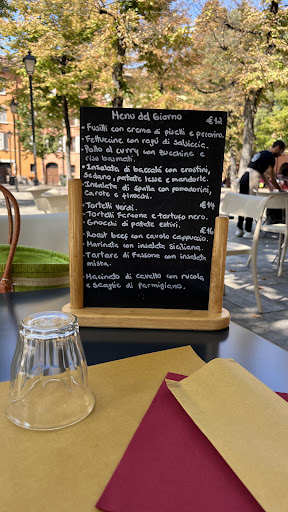 Menu del Giorno
€12
- Fusilli con crema di piselli e pecorino.
- Fettuccine con ragù di salsiccia.
- Pollo al curry con zucchine e
riso basmati.
- Insalata di baccalà con crostini,
Sedano, patate lesse e mandorle.
- Insalata di Spalla con pomodorini,
carote e finocchi.
- Tortelli Verdi.
€14
- Tortelli Faraona e tartufo nero.
- Gnocchi di patate estivi.
€16
- Roast beef con cavolo cappuccio.
- Marinata con insalata Siciliana.
- Tartare di Fassona con insalata
mista.
- Macinato di cavallo con rucola
e scaglie di parmigiano.